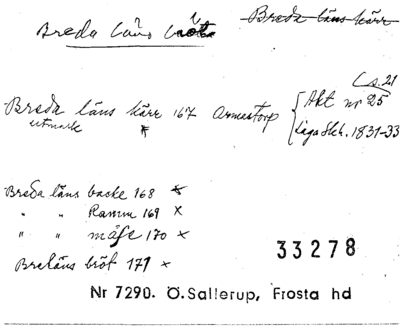 Breda läns
Breda läns kärr
(s. 21
Breda läns kärr 167 Armastorp
utmark
Akt nr 25
Laga Skt. 1831-33
Breda läns backe 168 x
" " Ramm 169 x
" " måse 170 x
Breläns bröt 171 x
33278
Nr 7290. Ö.Sallerup, Frosta hd